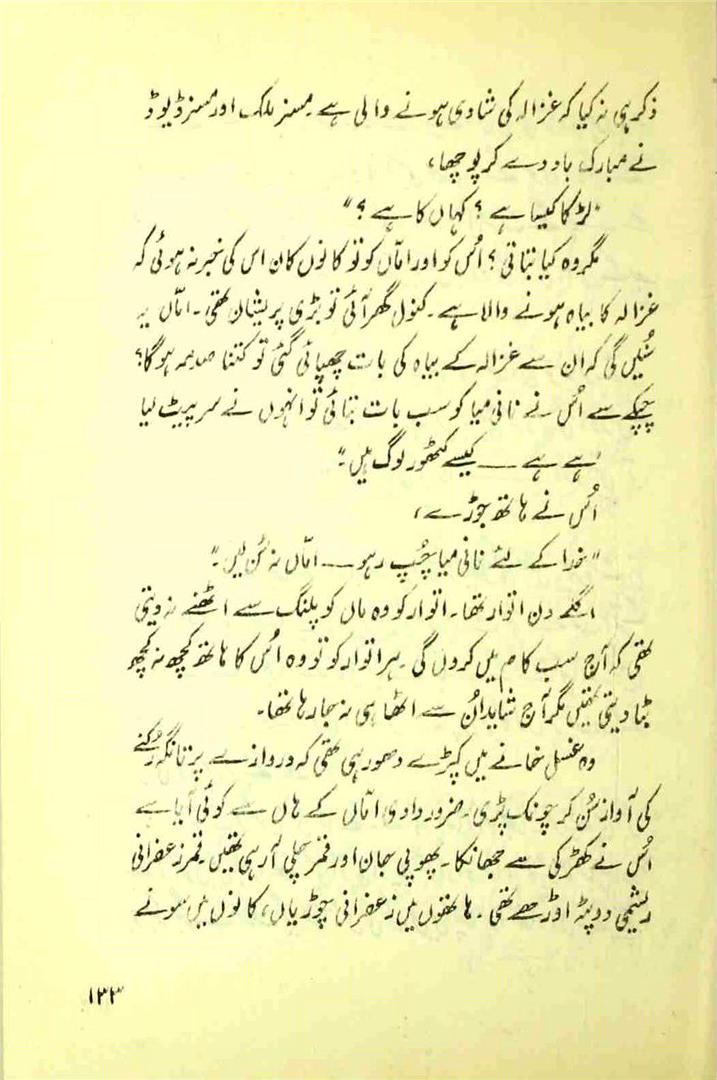 ذکر ہی نہ کیا کہ غزالہ کی شادی ہونے والی ہے۔ مسز ملک اور مسز ڈیوڈ
نے مبارک باد دے کر پوچھا،
"لڑکا کیسا ہے؟ کہاں کا ہے؟"
مگر وہ کیا بتاتی؟ اُس کو اور امّاں کو تو کانوں کان اس کی خبر نہ ہوئی کہ
غزالہ کا بیاہ ہونے والا ہے۔ کنول گھر آئی تو بڑی پریشان تھی۔ امّاں یہ
سُنیں گی کہ ان سے غزالہ کے بیاہ کی بات چھپائی گئی تو کتنا صدمہ ہوگا؟
چپکے سے اُس نے نانی میا کو سب بات بتائی تو انہوں نے سر پیٹ لیا
"ہے ہے — کیسے کٹھور لوگ ہیں۔"
اُس نے ہاتھ جوڑے،
"خدا کے لئے نانی میا چُپ رہو — امّاں نہ سُن لیں۔"
اگلے دن اتوار تھا۔ اتوار کو وہ ماں کو پلنگ سے اٹھنے نہ دیتی
تھی کہ آج سب کام میں کروں گی۔ ہر اتوار کو تو وہ اُس کا ہاتھ کچھ نہ کچھ
بٹا دیتی تھیں مگر آج شاید اُن سے اٹھا ہی نہ جا رہا تھا۔
وہ غسل خانے میں کپڑے دھو رہی تھی کہ دروازے پر تانگہ رکنے
کی آواز سُن کر چونک پڑی۔ ضرور دادی امّاں کے ہاں سے کوئی آیا ہے
اُس نے کھڑکی سے جھانکا۔ پھوپی جان اور قمر چلی آ رہی تھیں۔ قمر زعفرانی
ریشمی دوپٹہ اوڑھے تھی۔ ہاتھوں میں زعفرانی چوڑیاں، کانوں میں سونے
۱۳۳